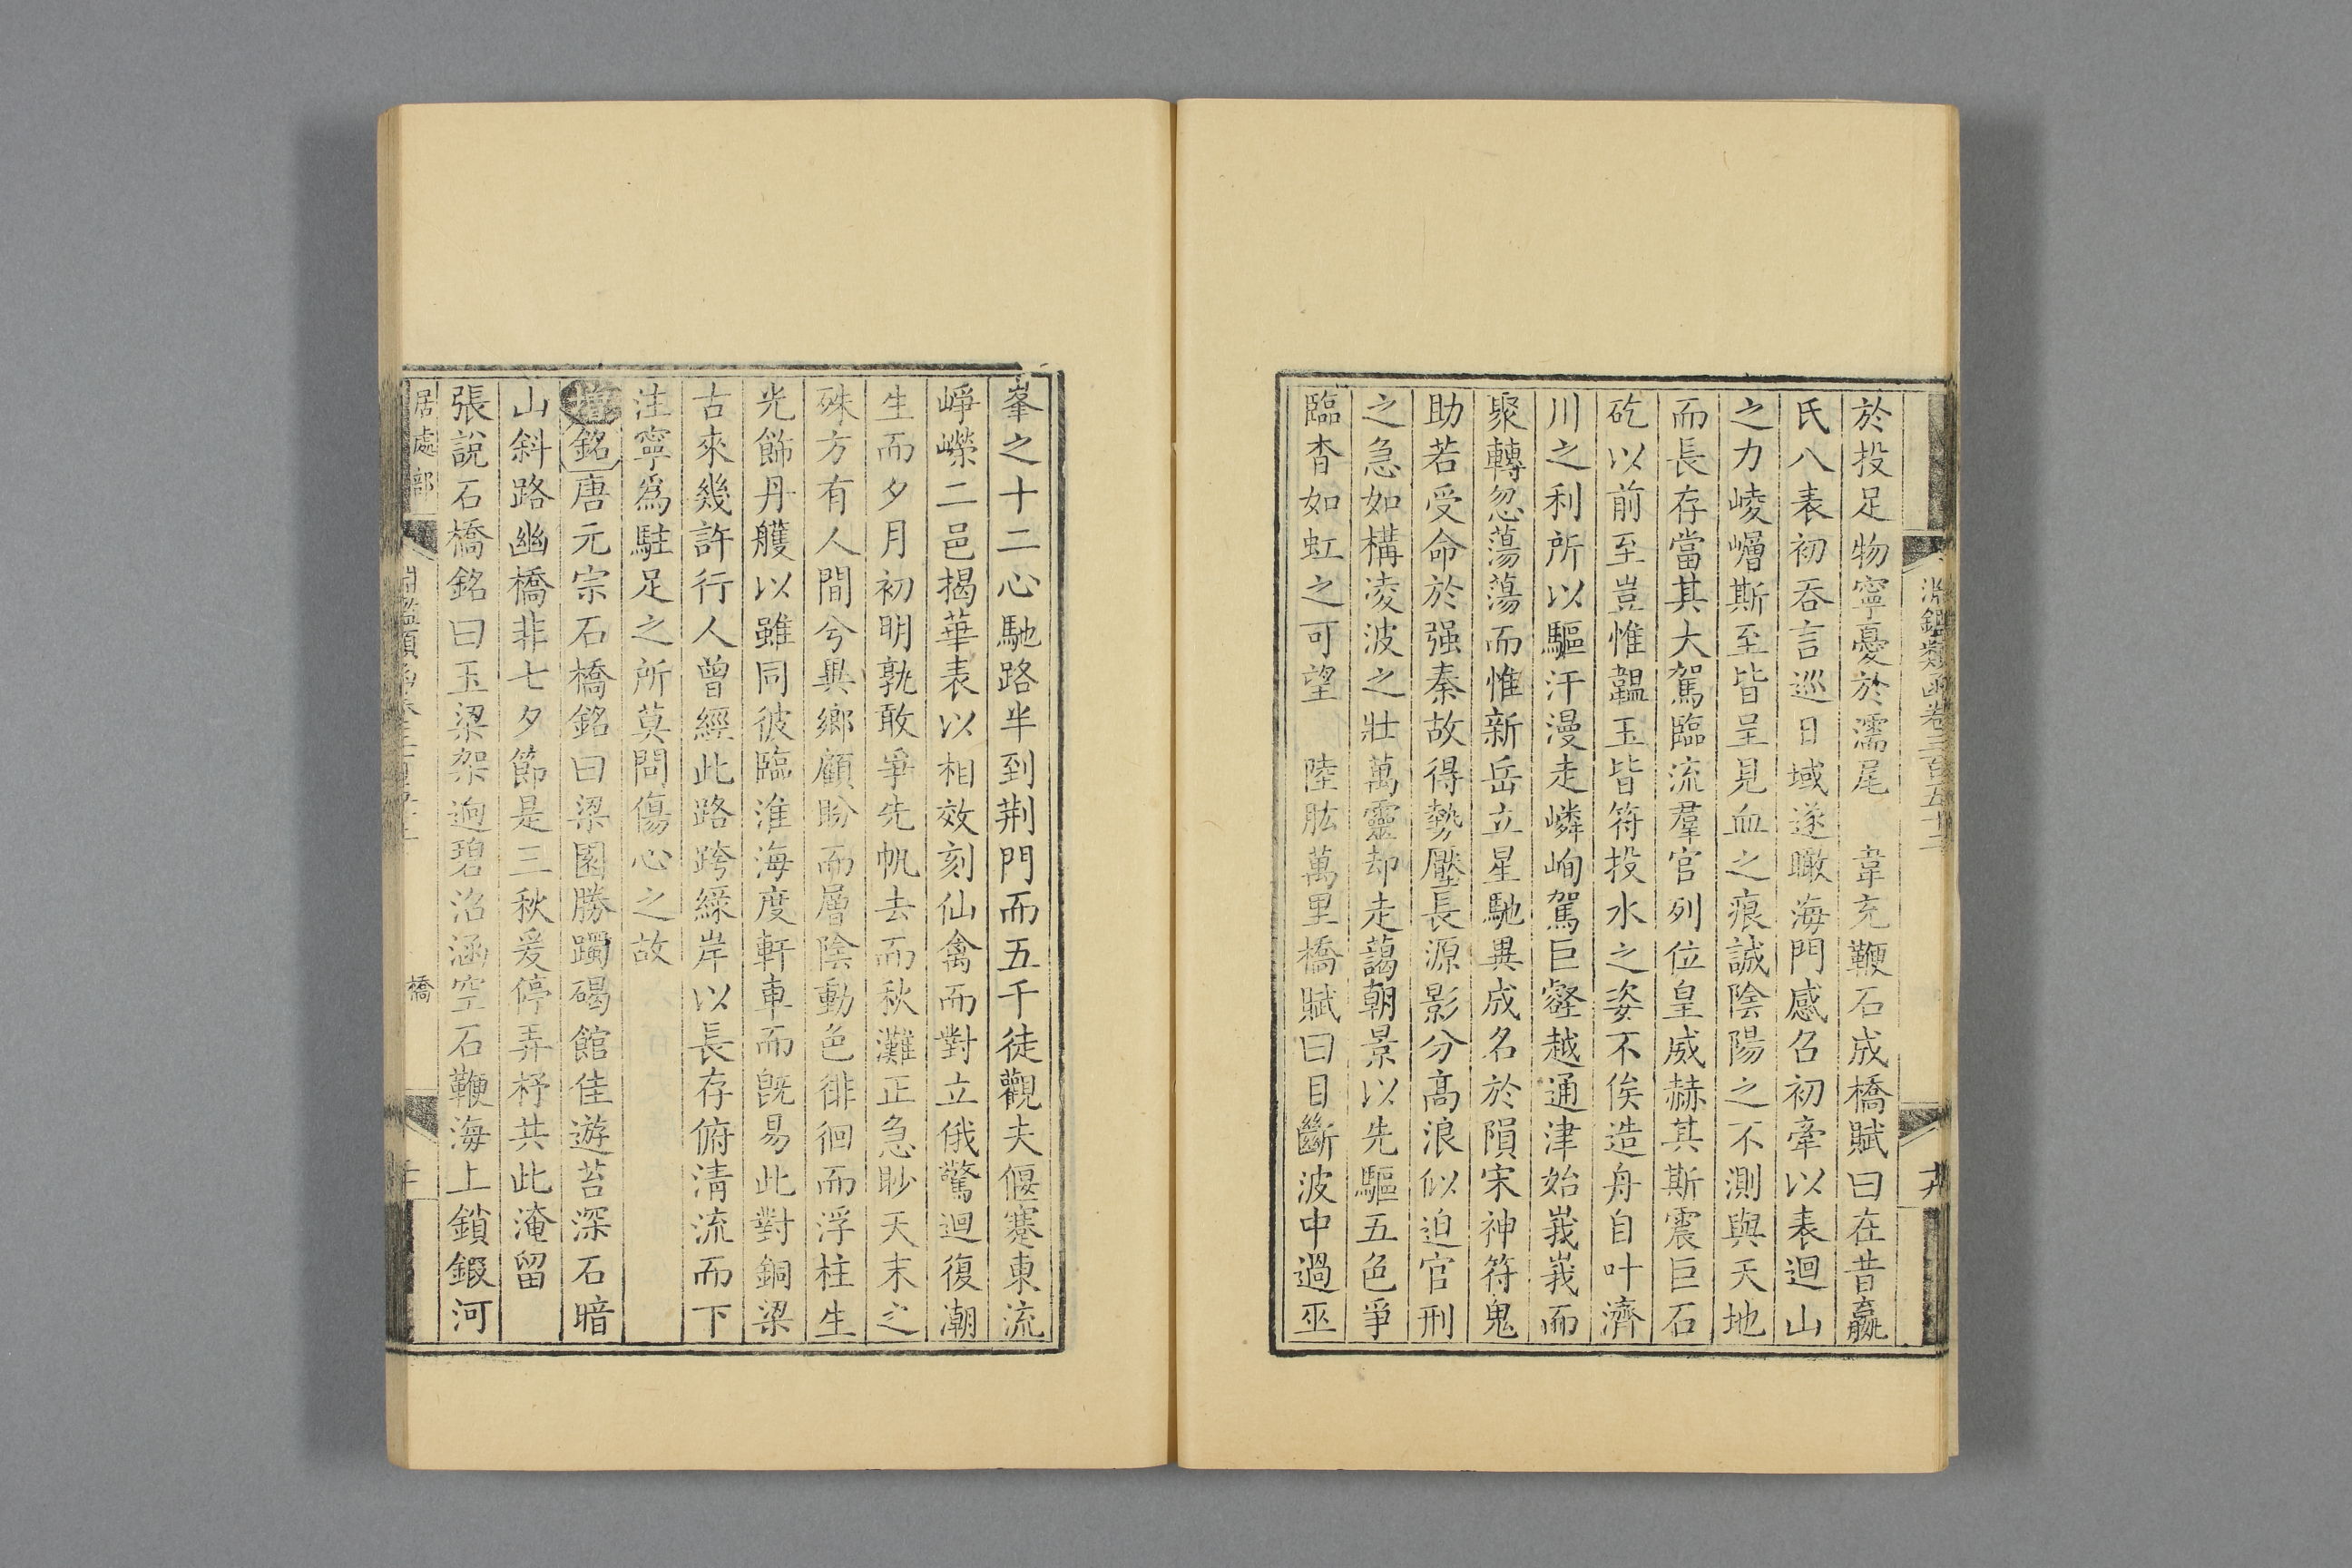 淵鑑類函卷三百五十二
於投足物寧憂於濡尾　韋充鞭石成橋賦曰在昔嬴
氏八表初吞言巡日域遂瞰海門感召初牽以表迴山
之力崚嶒斯至皆呈見血之痕誠陰陽之不測與天地
而長存當其大駕臨流羣官列位皇威赫其斯震巨石
矻以前至豈惟韞玉皆符投水之姿不俟造舟自叶濟
川之利所以驅汗漫走嶙峋駕巨壑越通津始峩峩而
聚轉忽蕩蕩而惟新岳立星馳異成名於隕宋神符鬼
助若受命於强秦故得勢壓長源影分高浪似迫官刑
之急如構凌波之壯萬靈却走藹朝景以先驅五色爭
臨杳如虹之可望　陸肱萬里橋賦曰目斷波中過巫
峯之十二心馳路半到荆門而五千徒觀夫偃蹇東流
崢嶸二邑揭華表以相效刻仙禽而對立俄驚迴復潮
生而夕月初明孰敢爭先帆去而秋灘正急眇天末之
殊方有人間兮異鄉顧盼而層陰動色徘徊而浮柱生
光飾丹艧以雖同彼臨淮海度軒車而旣易此對銅梁
古來幾許行人曾經此路跨綵岸以長存俯淸流而下
注寧爲駐足之所莫問傷心之故
增銘唐元宗石橋銘曰梁園勝躅碣館佳遊苔深石暗
山斜路幽橋非七夕節是三秋爰停弄杼共此淹留
張說石橋銘曰玉梁架迥碧沼涵空石鞭海上鎖鍜河
居處部
橋